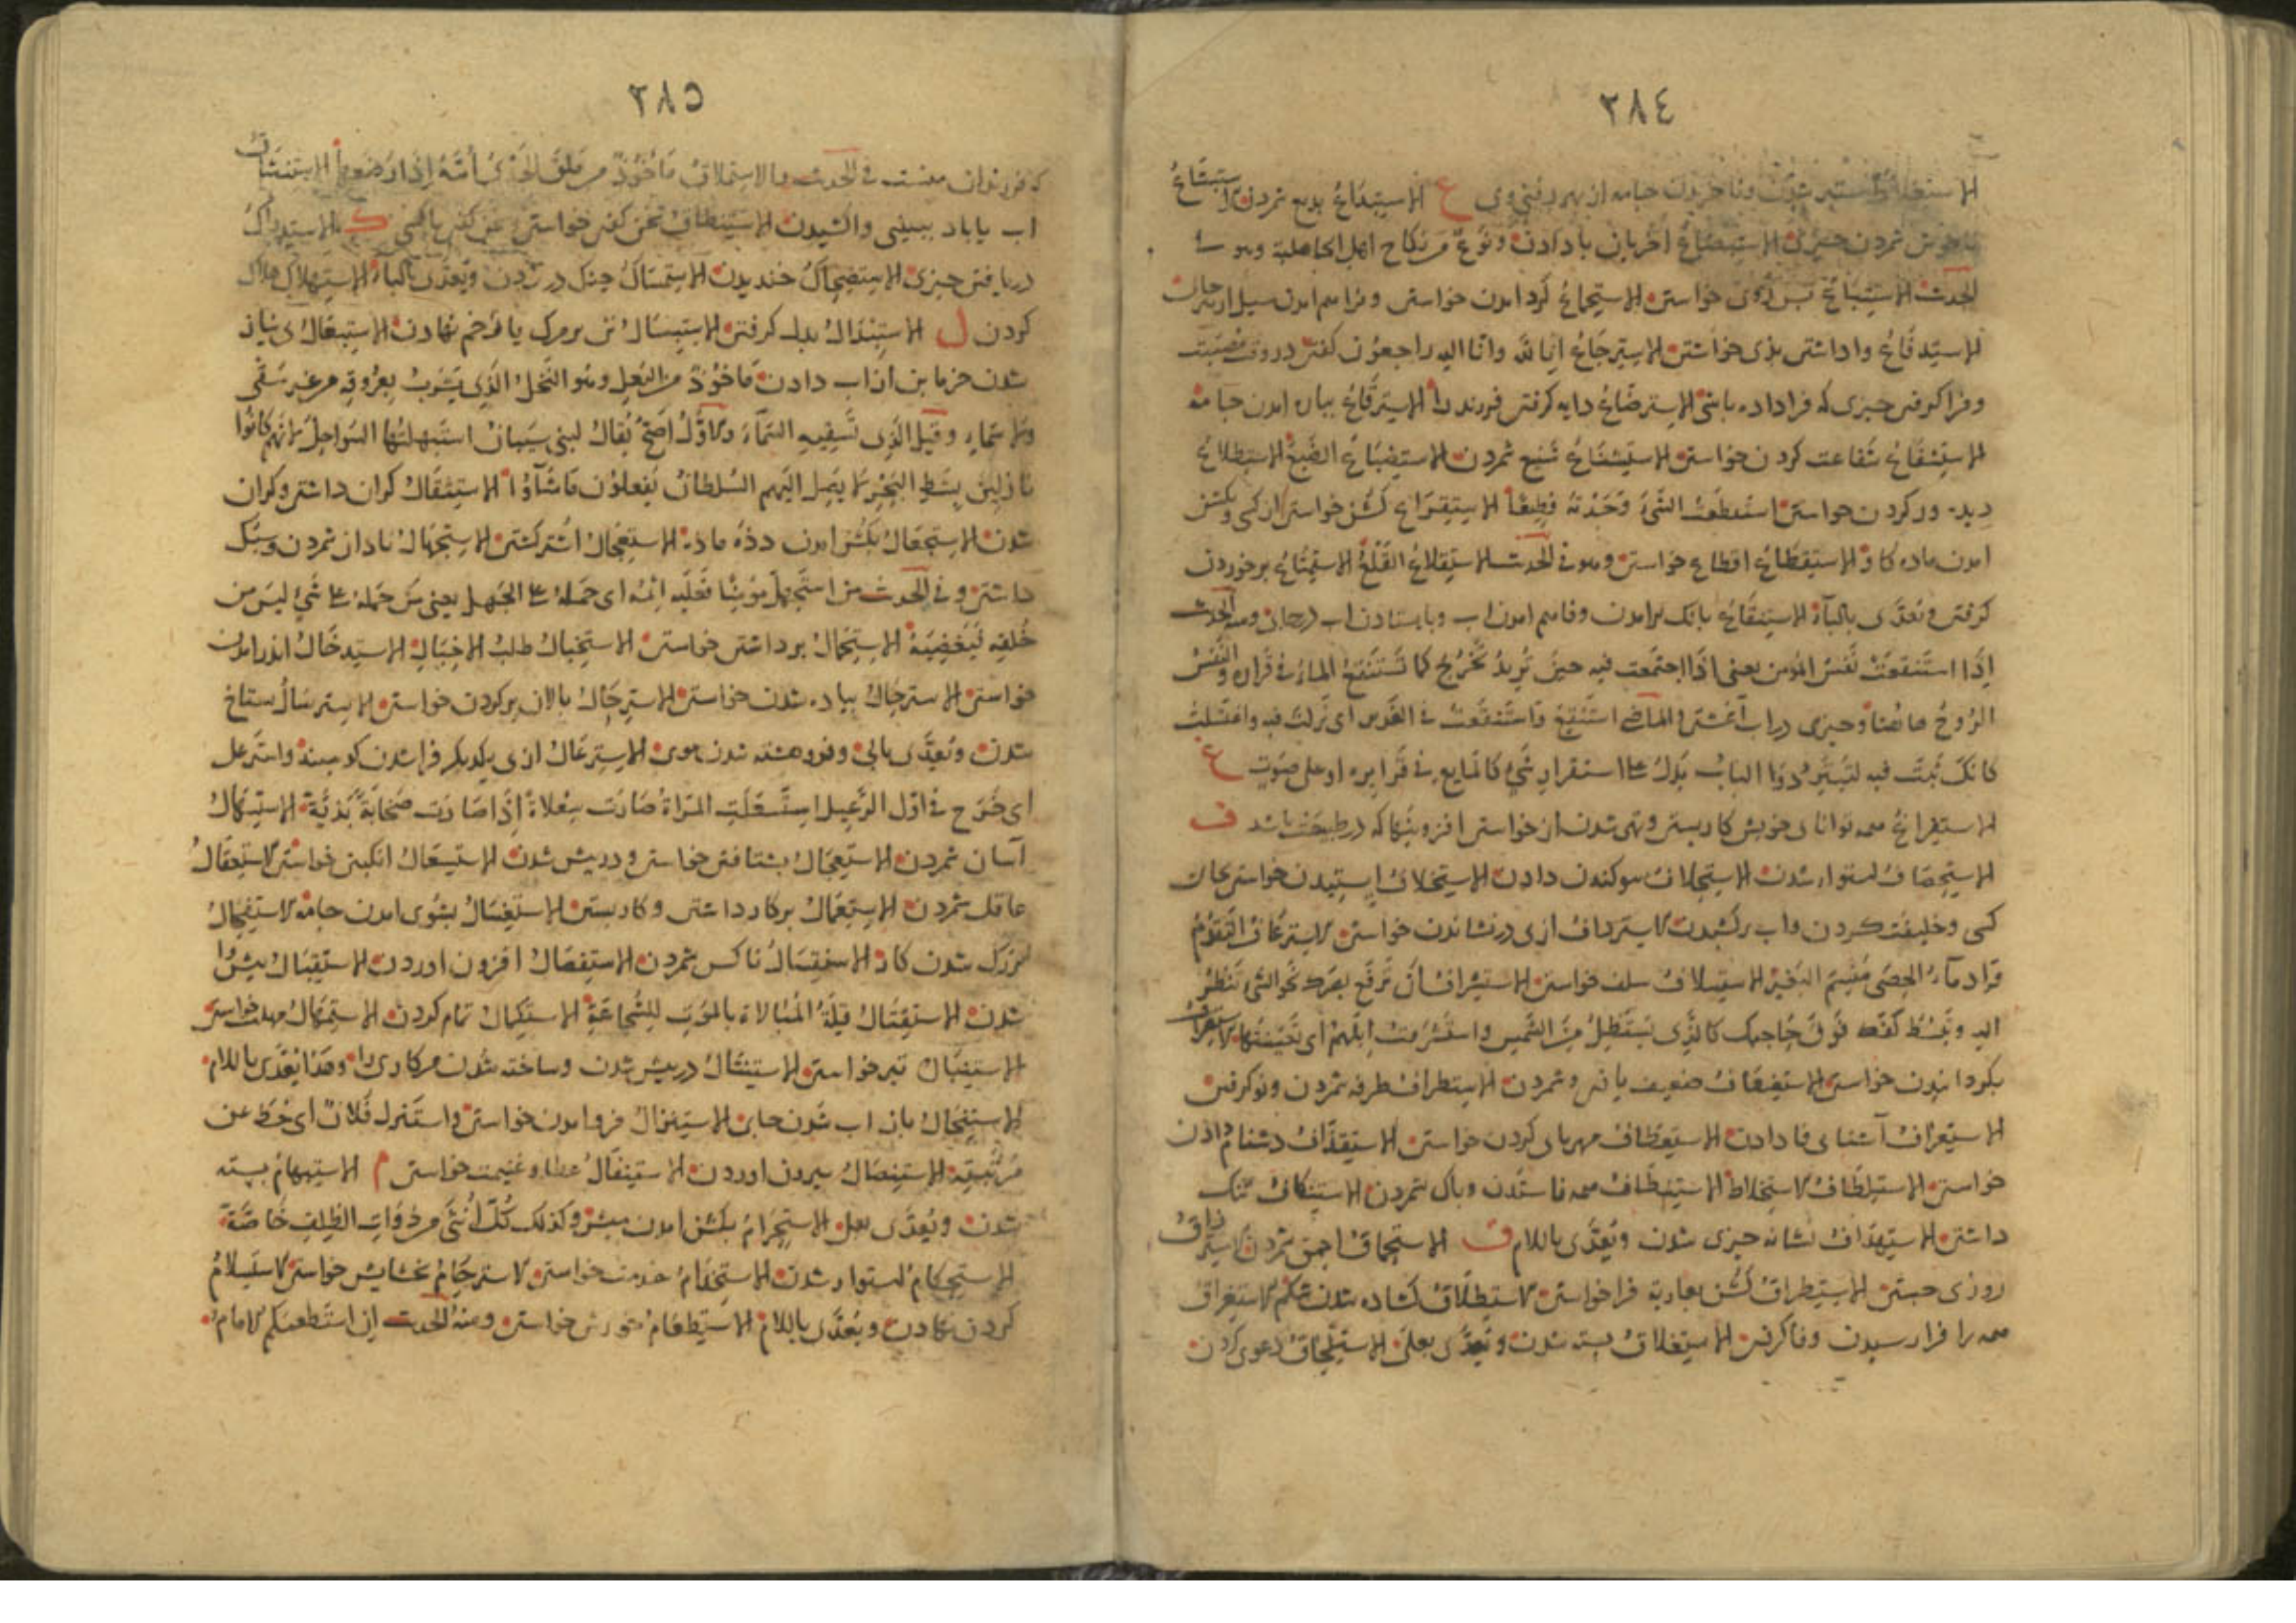 ٢٨٤
الاستغلاظ ستبر شدن وناخریدن جامه از بهر درشتی وی ع الاستبداع بدیع شمردن الاستبشاع
ناخوش شمردن چیزی الاستبضاع اخریان بادادن ونوع من نکاح اهل الجاهلیة وهو فی
الحدیث الاستتباع پس روی خواستن الاستجماع گرد امدن خواستن وفراهم امدن سیل از هر جای
الاستدفاع واداشتن بدی خواستن الاسترجاع انا لله وانا الیه راجعون گفتن در وقت مصیبت
وفرا گرفتن چیزی که فراداده باشی الاسترضاع دایه گرفتن فرزند را الاسترقاع بپاره امدن جامه
الاستشفاع شفاعت کردن خواستن الاستشناع شنیع شمردن الاستضباع الضبع الاستطلاع
دیده ور کردن خواستن استفظعت الشئ وجدته فظیعا الاستقراع گشن خواستن از کسی وبگشن
امدن ماده گاو الاستقطاع اقطاع خواستن وهو فی الحدیث الاستقلاع القلع الاستمتاع برخوردن
گرفتن وتعدی بالباء الاستنقاع بانک برامدن وفاهم امدن اب وبایستادن اب در جای ومنه الحدیث
اذا استنقعت نفس المؤمن یعنی اذا اجتمعت فیه حین ترید تخرج کما تستنقع الماء فی قراره والنفس
الروح هاهنا وچیزی در اب آغشتن والماضی استنقع واستنقعت فی الغدیر ای نزلت فیه واغتسلت
کانک ثبت فیه لتبترد وذا الباب یدل علی استقرار شئ کالمایع فی قراره او علی صوت غ
الاستفراغ همه توانای خویش کار بستن وتهی شدن از خواستن افزونیها که در طبیعت باشد ف
الاستحصاف استوار شدن الاستحلاف سوکند دادن الاستخلاف ایستیدن خواستن بجای
کسی وخلیفت کردن واب برکشیدن الاسترداف ازی در نشاندن خواستن الاسترعاف التقدم
الاستسلاف سلف خواستن الاستشراف ان ترفع بصرک نحو الشئ تنظر
الیه وتبسط کفک فوق حاجبک کالذی یستظل من الشمس واستشرفت ابلهم ای تعینتها الاستصراف
بگردانیدن خواستن الاستضعاف ضعیف یافتن وشمردن الاستطراف طرفه شمردن ونو گرفتن
الاستعراف آشنای فا دادن الاستعطاف مهربای کردن خواستن الاستقذاف دشنام دادن
خواستن الاستلطاف الاستخلاط الاستنظاف همه فاستدن وپاک شمردن الاستنکاف ننک
داشتن الاستهداف نشانه چیزی شدن وتعدی باللام ق الاستحماق احمق شمردن الاسترزاق
روزی جستن الاستطراق گشن بعاریه فراخواستن الاستطلاق گشاده شدن شکم الاستغراق
همه را فرا رسیدن وفا گرفتن الاستغلاق بسته شدن وتعدی بعلی الاستلحاق دعوی کردن
٢٨٥
که فرزند ان منست فی الحدیث والاستملاق ماخوذ من ملق الجدی امه اذا رضعها الاستنشاق
اب یا باد ببینی واکشیدن الاستنطاق سخن گفتن خواستن ک الاستدراک
دریافتن چیزی الاستضحاک خندیدن الاستمساک چنک در زدن وتعدی بالباء الاستهلاک هلاک
کردن ل الاستبدال بدل گرفتن الاستبسال تن بر مرک یا زخم نهادن الاستبعال بی نیاز
شدن خرما بن از اب دادن ماخوذ من البعل وهو النخل الذی یشرب بعروقه من غیر سقی
ولا سماء وقیل الذی تسقیه السماء والاول اصح یقال لبنی شیبان استبهلتها السواحل لانهم کانوا
نازلین بشط البحر لا یصل الیهم السلطان یفعلون ما شآؤا الاستثقال گران داشتن وگران
شدن الاستجعال بگشن امدن دده ماده الاستعجال اشتر گشتن الاستجهال نادان شمردن وسبک
داشتن وفی الحدیث من استجهل مؤمنا فعلیه اثمه ای حمله علی الجهل یعنی من حمله علی شئ لیس من
خلقه فیغضبه الاستحمال برداشتن خواستن الاستخبال طلب الاخبال الاستدخال اندر امدن
خواستن الاسترجال پیاده شدن خواستن الاسترحال پالان برکردن خواستن الاسترسال ستاخ
شدن وتعدی بالی وفروهشته شدن موی الاسترعال ازی یکدیگر فرا شدن گوسپند واسترعل
ای خرج فی اول الرعیل استسعلت المراة صارت سعلاة اذا صارت صخابة بذیة الاستسهال
آسان شمردن الاستعجال بشتافتن خواستن ودر پیش شدن الاستعسال انگبین خواستن الاستعقال
عاقل شمردن الاستعمال بر کار داشتن وکار بستن الاستغسال بشوی امدن جامه الاستفحال
بزرک شدن کار الاستفسال ناکس شمردن الاستفضال افزون اوردن الاستقبال پیش وا
شدن الاستقتال قلة المبالاة بالموت للشجاعة الاستکمال تمام کردن الاستمهال مهلت خواستن
الاستنبال تیر خواستن الاستنتال در پیش شدن وساخته شدن مر کاری را وهذا یعدی باللام
الاستنجال باز اب شدن جای الاستنزال فرو امدن خواستن واستنزل فلان ای حط عن
مرتبته الاستنصال بیرون اوردن الاستنفال عطا وغنیمت خواستن م الاستبهام بسته
شدن وتعدی بعلی الاستحرام بگشن امدن میش وکذلک کل انثی من ذوات الظلف خاصة
الاستحکام استوار شدن الاستخدام خدمت خواستن الاسترحام بخشایش خواستن الاستسلام
گردن نهادن وتعدی باللام الاستطعام خورش خواستن ومنه الحدیث ان استطعمکم الامام